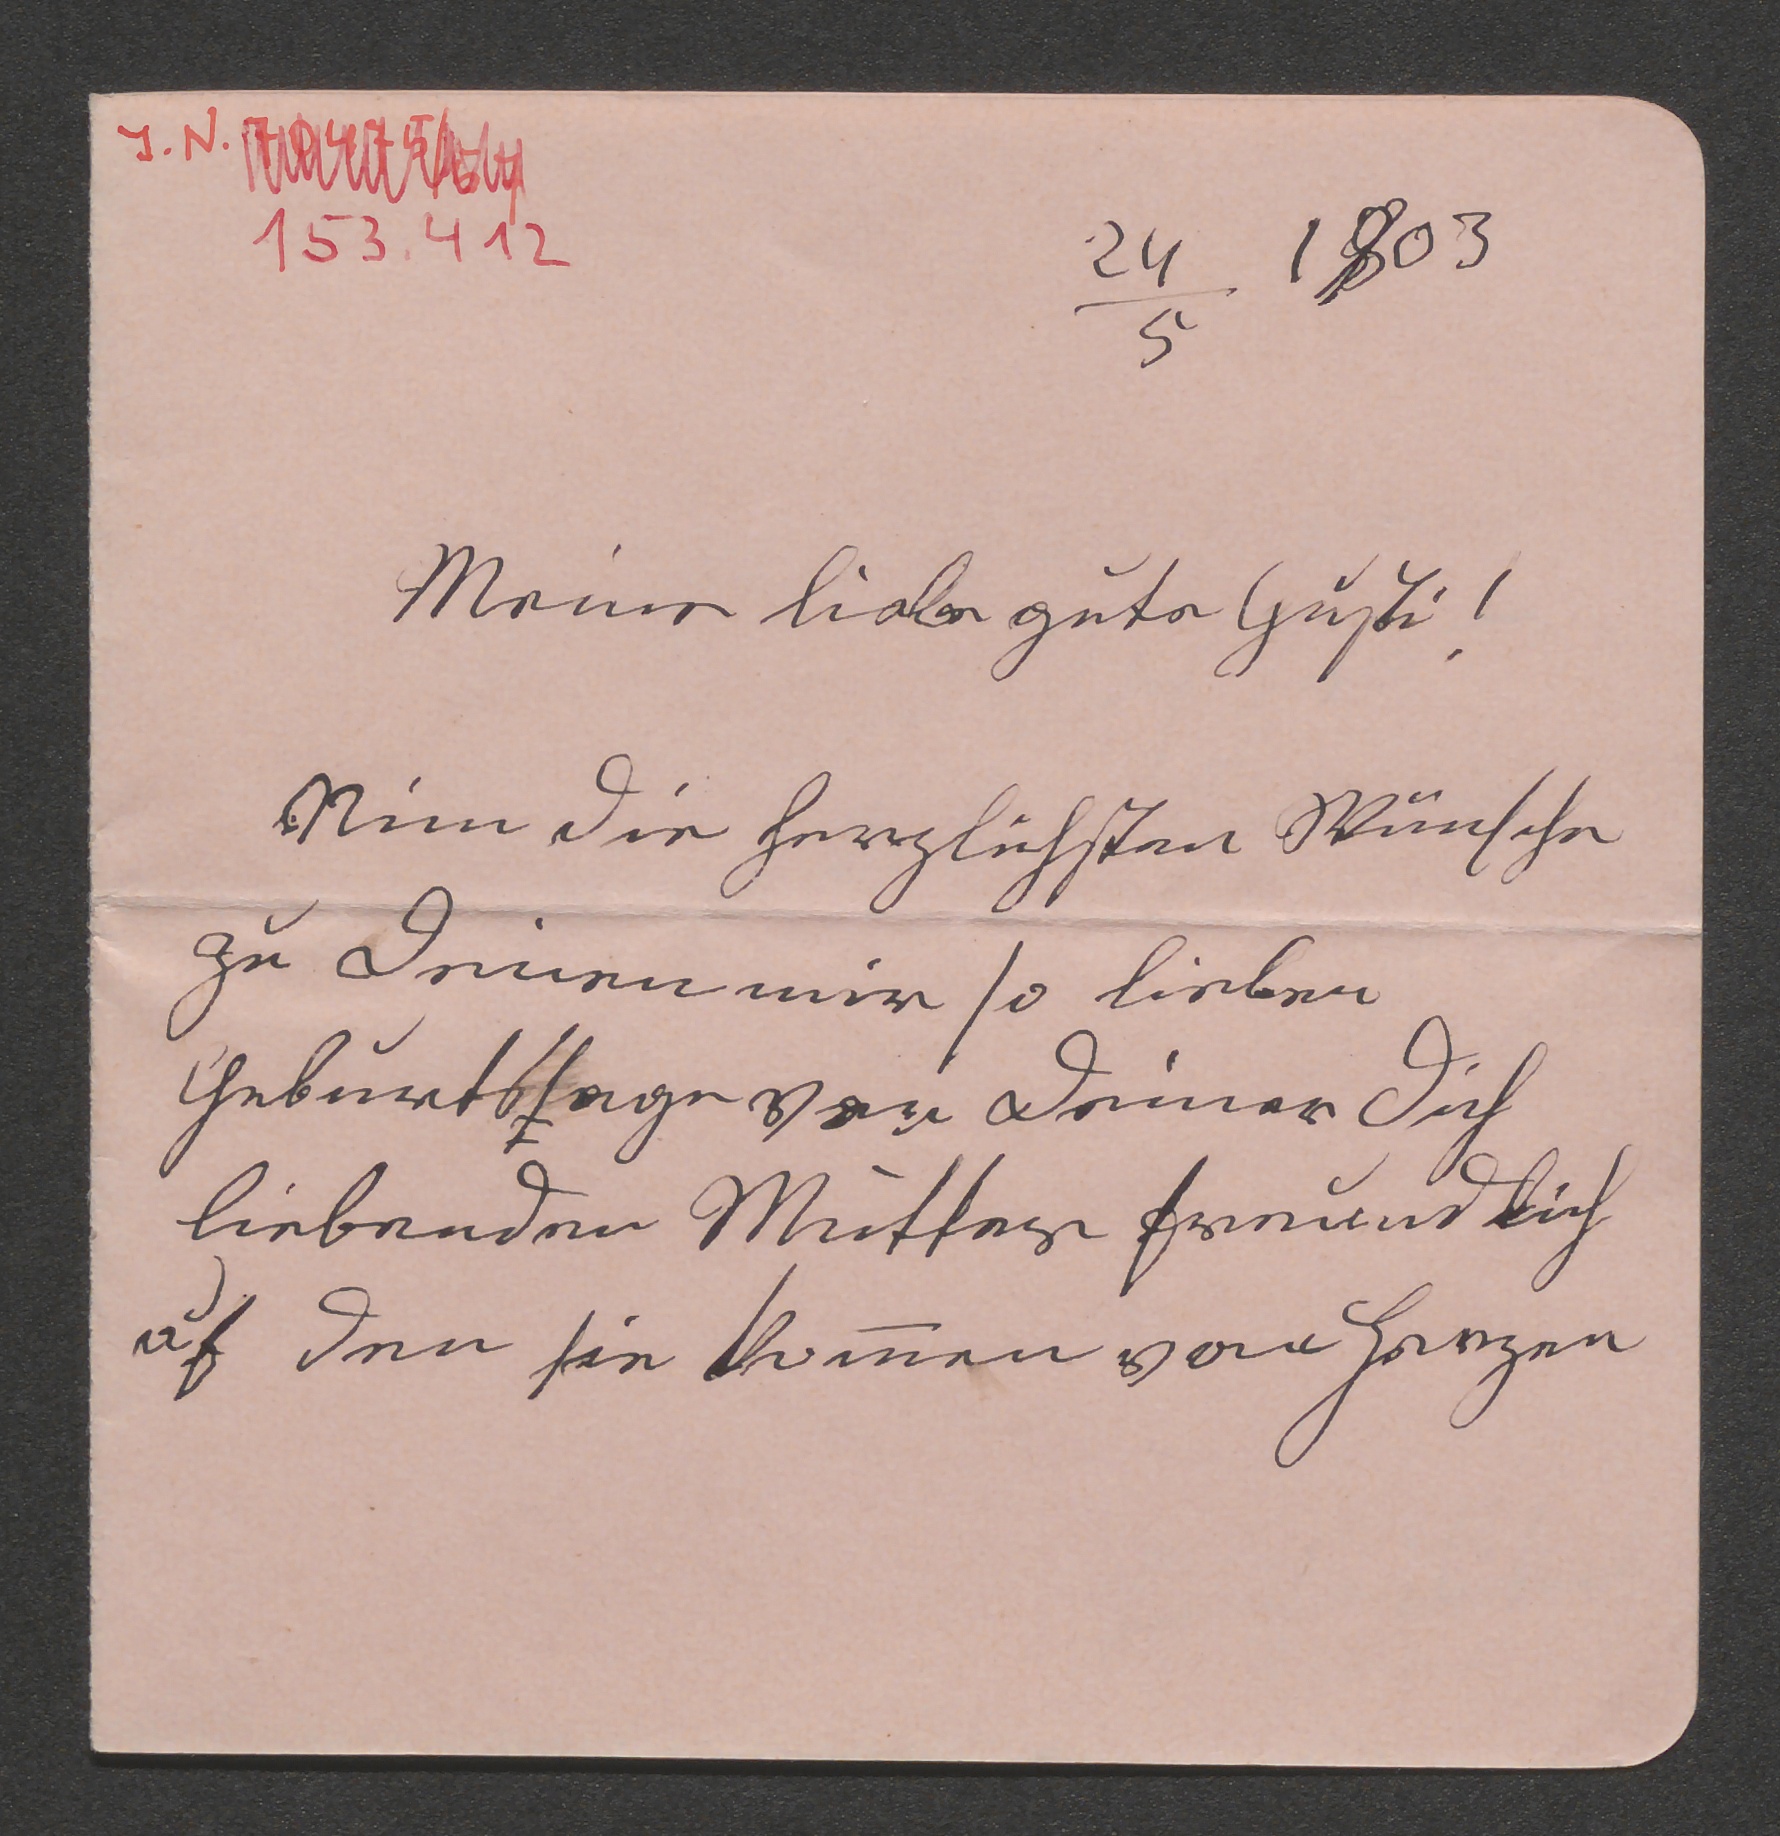 J. N.
153.412
24/5 1903
Meine liebe gute Gusti!
Nim die herzlichsten Wünsche
zu Deinen mir so lieben
Geburtstage von Deiner Dich
liebenden Mutter freundlich
auf den sie kom̅en von Herzen